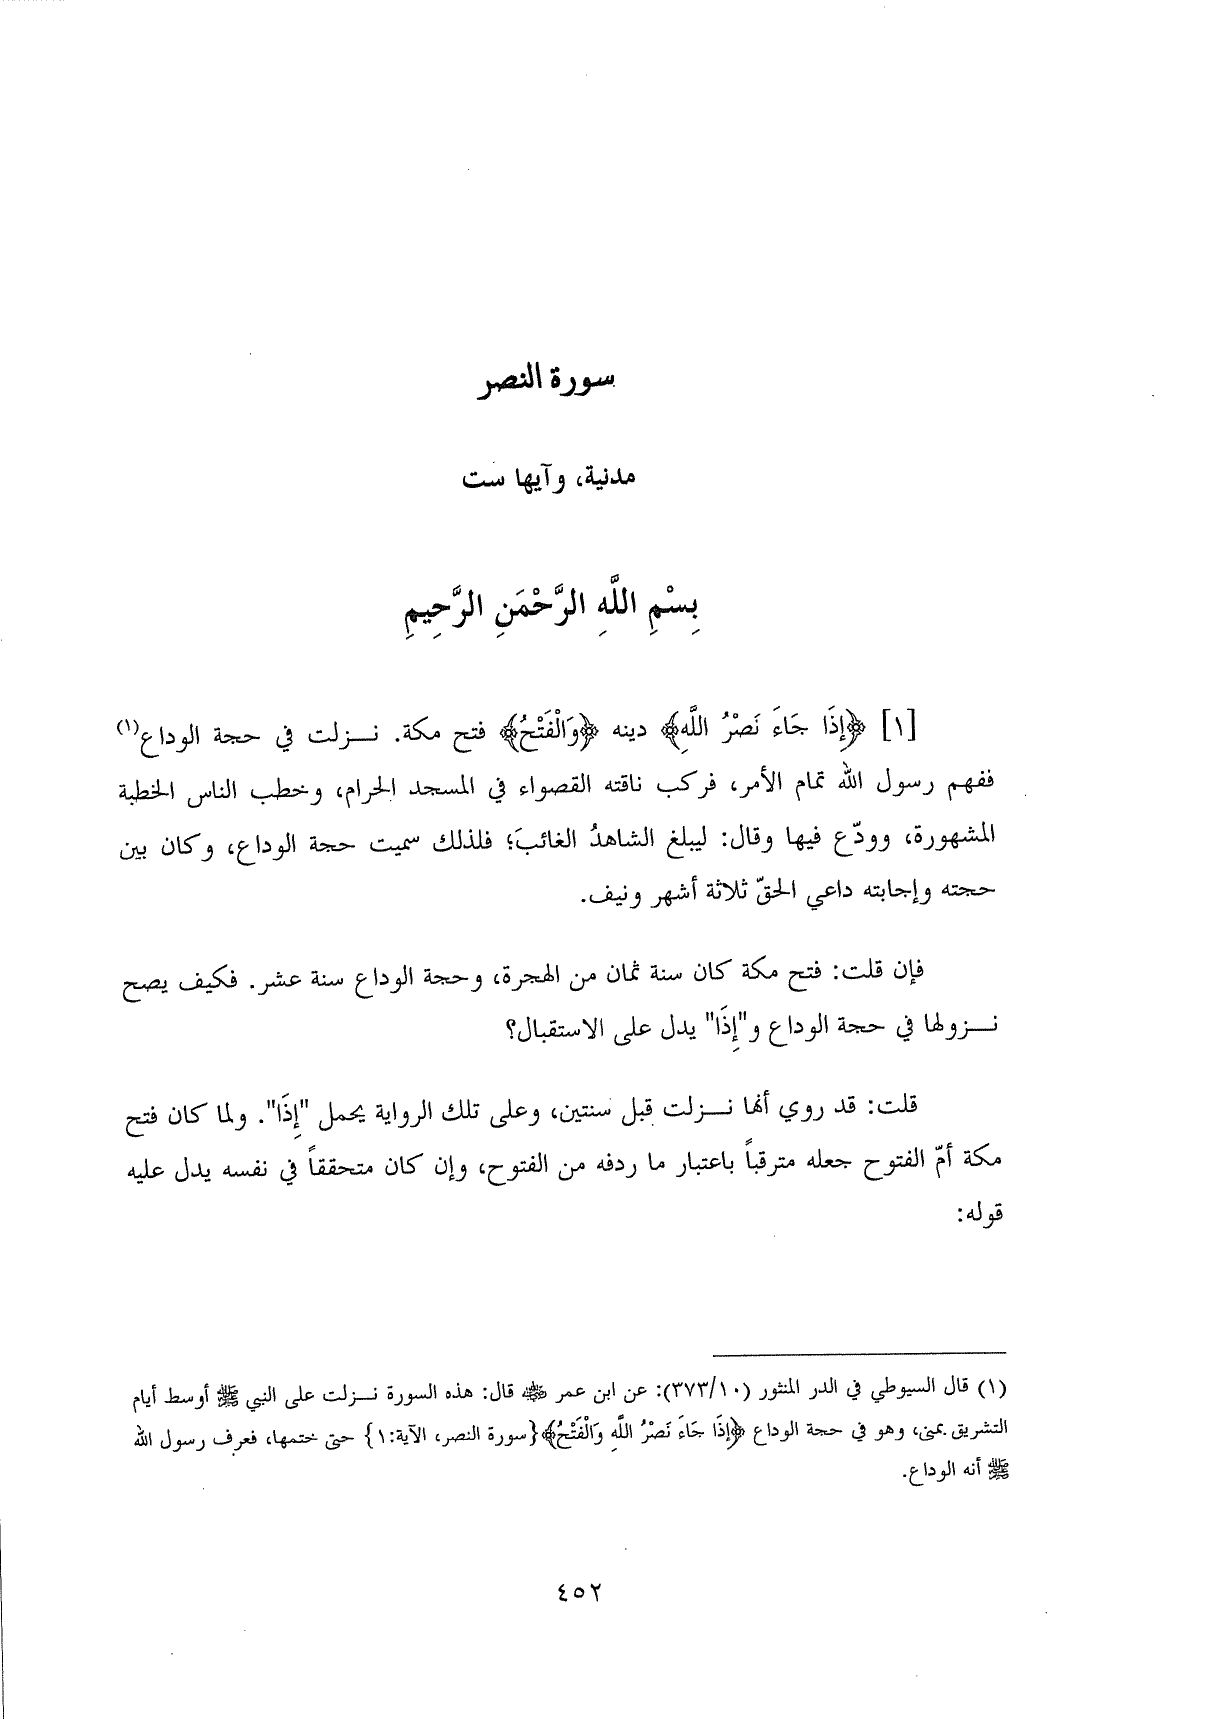 سورة النصر
مدنية، وآيها ست
بِسْمِ اللَّهِ الرَّحْمَنِ الرَّحِيمِ
[١] ﴿إِذَا جَاءَ نَصْرُ اللَّهِ﴾ دينه ﴿وَالْفَتْحُ﴾ فتح مكة. نـزلت في حجة الوداع(١)
ففهم رسول الله تمام الأمر، فركب ناقته القصواء في المسجد الحرام، وخطب الناس الخطبة
المشهورة، وودّع فيها وقال: ليبلغ الشاهدُ الغائبَ؛ فلذلك سميت حجة الوداع، وكان بين
حجته وإجابته داعي الحقّ ثلاثة أشهر ونيف.
فإن قلت: فتح مكة كان سنة ثمان من الهجرة، وحجة الوداع سنة عشر. فكيف يصح
نـزولها في حجة الوداع و"إِذَا" يدل على الاستقبال؟
قلت: قد روي أنها نـزلت قبل سنتين، وعلى تلك الرواية يحمل "إِذَا". ولما كان فتح
مكة أمّ الفتوح جعله مترقباً باعتبار ما ردفه من الفتوح، وإن كان متحققاً في نفسه يدل عليه
قوله:
(١) قال السيوطي في الدر المنثور (٣٧٣/١٠): عن ابن عمر ﵁ قال: هذه السورة نـزلت على النبي ﷺ أوسط أيام
التشريق بمنى، وهو في حجة الوداع ﴿إِذَا جَاءَ نَصْرُ اللَّهِ وَالْفَتْحُ﴾{سورة النصر، الآية:١} حتى ختمها، فعرف رسول الله
ﷺ أنه الوداع.
٤٥٢